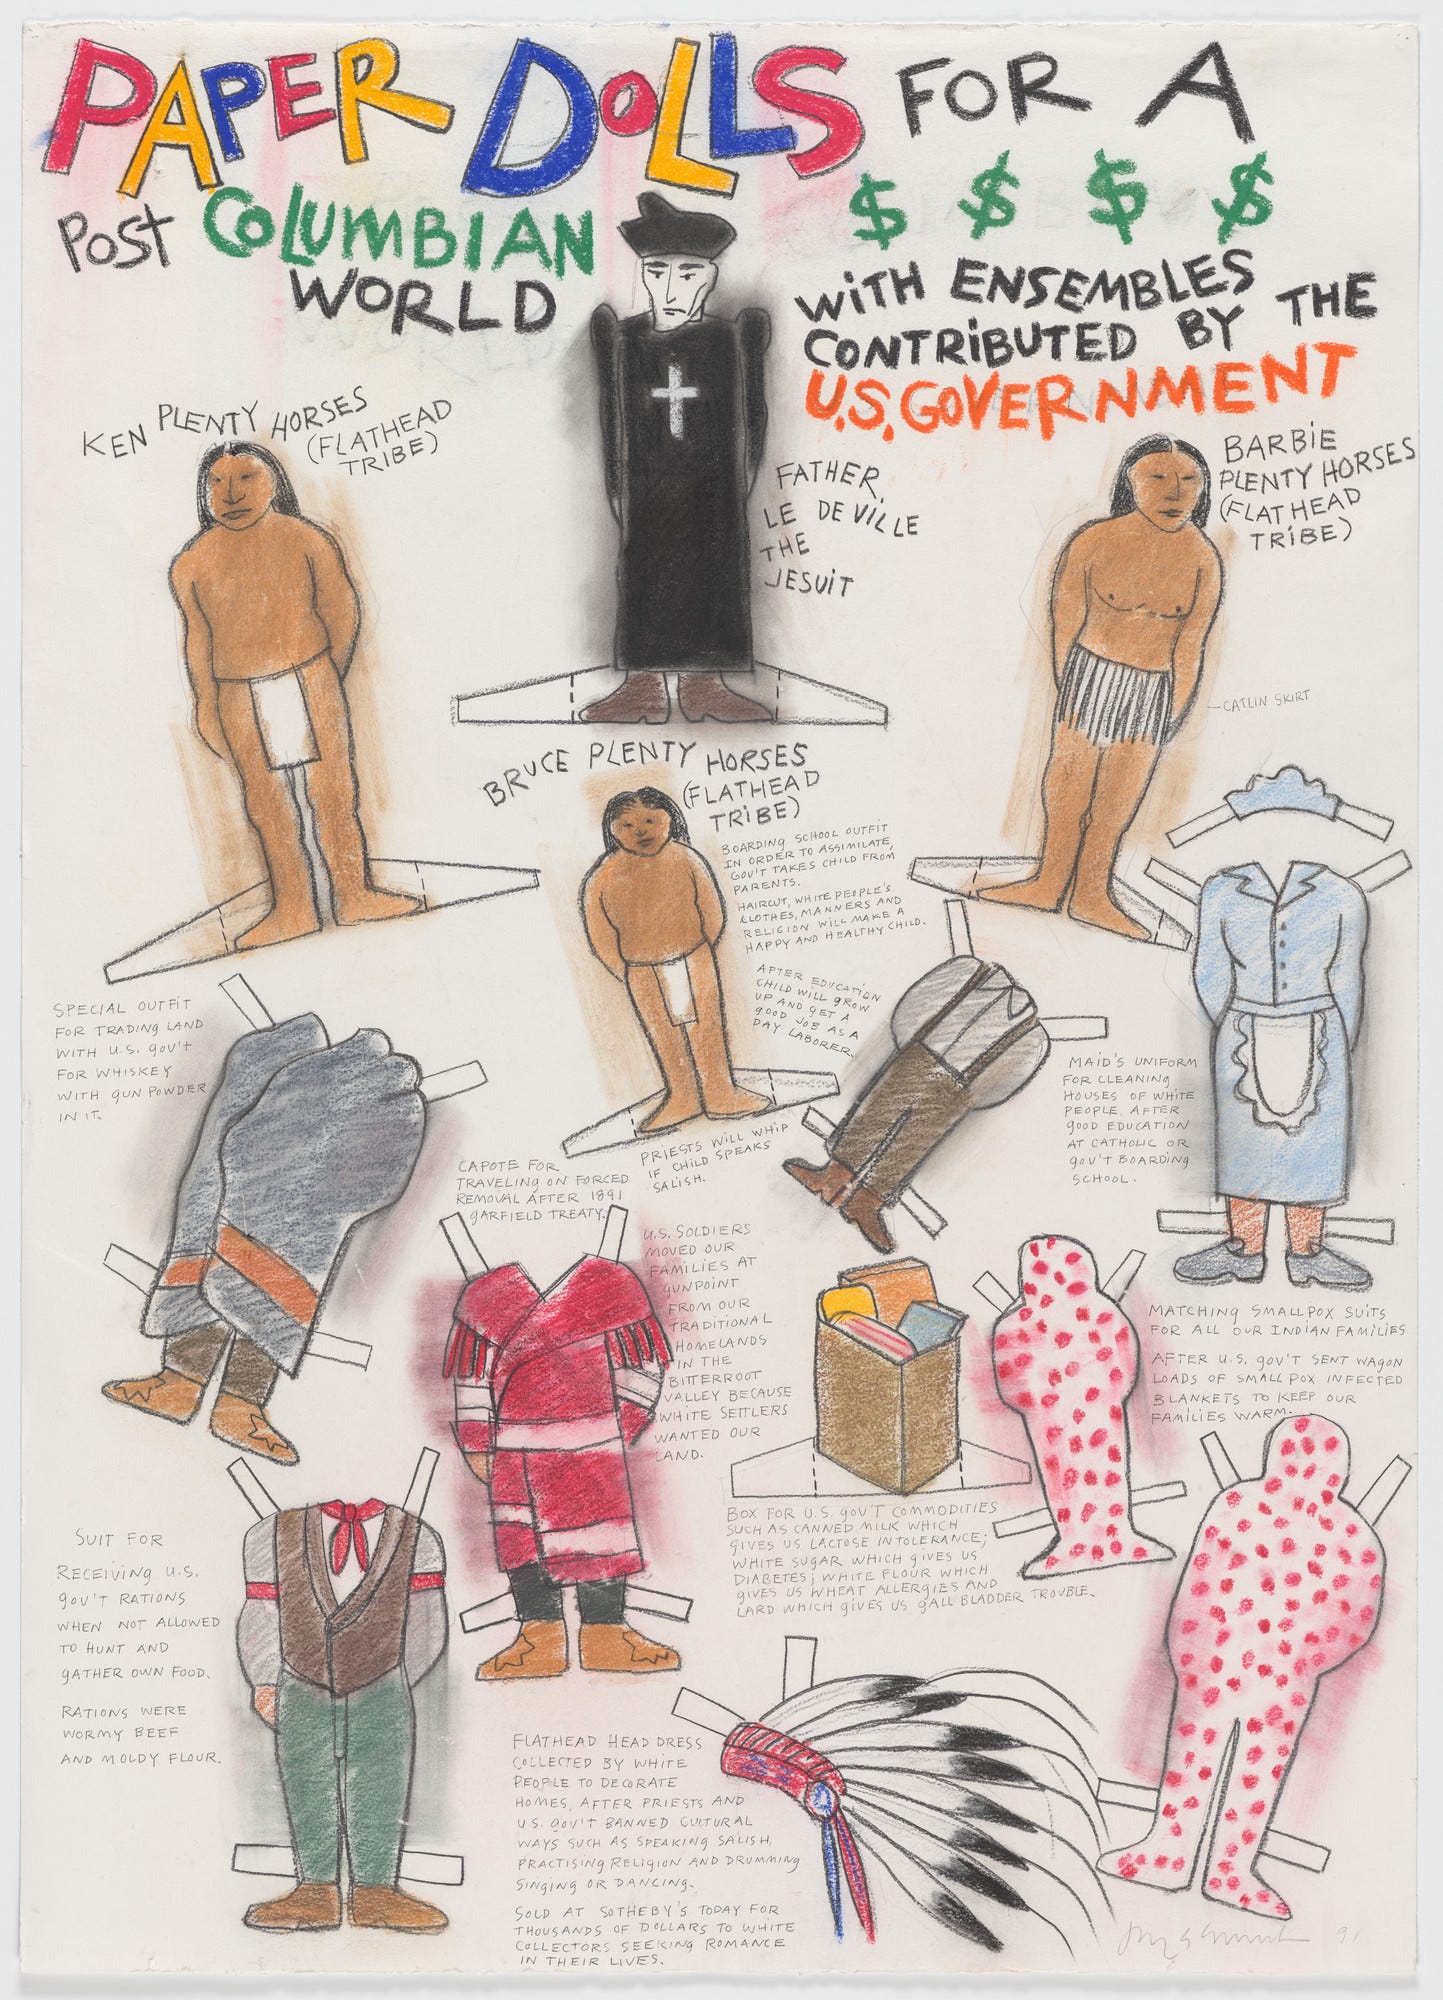 PAPER DOLLS FOR A
POST COLUMBIAN
WORLD
$ $ $ $
WITH ENSEMBLES
CONTRIBUTED BY THE
U.S. GOVERNMENT
KEN PLENTY HORSES
(FLATHEAD
TRIBE)
FATHER,
LE DE VILLE
THE
JESUIT
BARBIE
PLENTY HORSES
(FLATHEAD
TRIBE)
CATLIN SKIRT
BRUCE PLENTY HORSES
(FLATHEAD
TRIBE)
BOARDING SCHOOL OUTFIT
IN ORDER TO ASSIMILATE,
GOV'T TAKES CHILD FROM
PARENTS.
HAIRCUT, WHITE PEOPLE'S
CLOTHES, MANNERS AND
RELIGION WILL MAKE A
HAPPY AND HEALTHY CHILD.
AFTER EDUCATION
CHILD WILL GROW
UP AND GET A
GOOD JOB AS A
DAY LABORER.
PRIESTS WILL WHIP
IF CHILD SPEAKS
SALISH.
SPECIAL OUTFIT
FOR TRADING LAND
WITH U.S. GOV'T
FOR WHISKEY
WITH GUN POWDER
IN IT.
MAID'S UNIFORM
FOR CLEANING
HOUSES OF WHITE
PEOPLE AFTER
GOOD EDUCATION
AT CATHOLIC OR
GOV'T BOARDING
SCHOOL.
CAPOTE FOR
TRAVELING ON FORCED
REMOVAL AFTER 1891
GARFIELD TREATY.
U.S. SOLDIERS
MOVED OUR
FAMILIES AT
GUNPOINT
FROM OUR
TRADITIONAL
HOMELANDS
IN THE
BITTERROOT
VALLEY BECAUSE
WHITE SETTLERS
WANTED OUR
LAND.
MATCHING SMALLPOX SUITS
FOR ALL OUR INDIAN FAMILIES
AFTER U.S. GOV'T SENT WAGON
LOADS OF SMALLPOX INFECTED
BLANKETS TO KEEP OUR
FAMILIES WARM.
BOX FOR U.S. GOV'T COMMODITIES
SUCH AS CANNED MILK WHICH
GIVES US LACTOSE INTOLERANCE;
WHITE SUGAR WHICH GIVES US
DIABETES; WHITE FLOUR WHICH
GIVES US WHEAT ALLERGIES AND
LARD WHICH GIVES US GALL BLADDER TROUBLE.
SUIT FOR
RECEIVING U.S.
GOV'T RATIONS
WHEN NOT ALLOWED
TO HUNT AND
GATHER OWN FOOD.
RATIONS WERE
WORMY BEEF
AND MOLDY FLOUR.
FLATHEAD HEADDRESS
COLLECTED BY WHITE
PEOPLE TO DECORATE
HOMES, AFTER PRIESTS AND
U.S. GOV'T BANNED CULTURAL
WAYS SUCH AS SPEAKING SALISH,
PRACTISING RELIGION AND DRUMMING
SINGING OR DANCING.
SOLD AT SOTHEBY'S TODAY FOR
THOUSANDS OF DOLLARS TO WHITE
COLLECTORS SEEKING ROMANCE
IN THEIR LIVES.
91